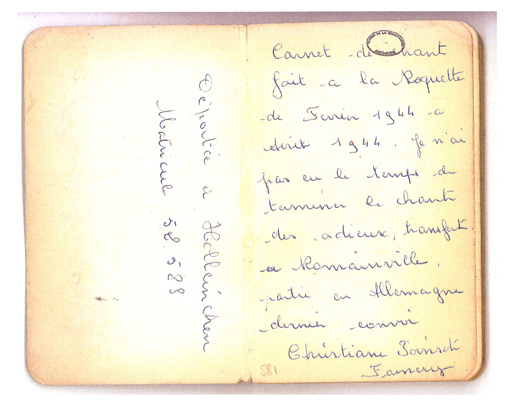 Déportée a Holleinchen
Matricul 58 583
Carnet de chant
fait a la Roquette
de Fevrier 1944 a
Aout 1944. Je n'ai
pas eu le temps de
terminer le chant
des adieux, transfert
a Romainville,
partie en Allemagne
dernier convoi
Christiane
581